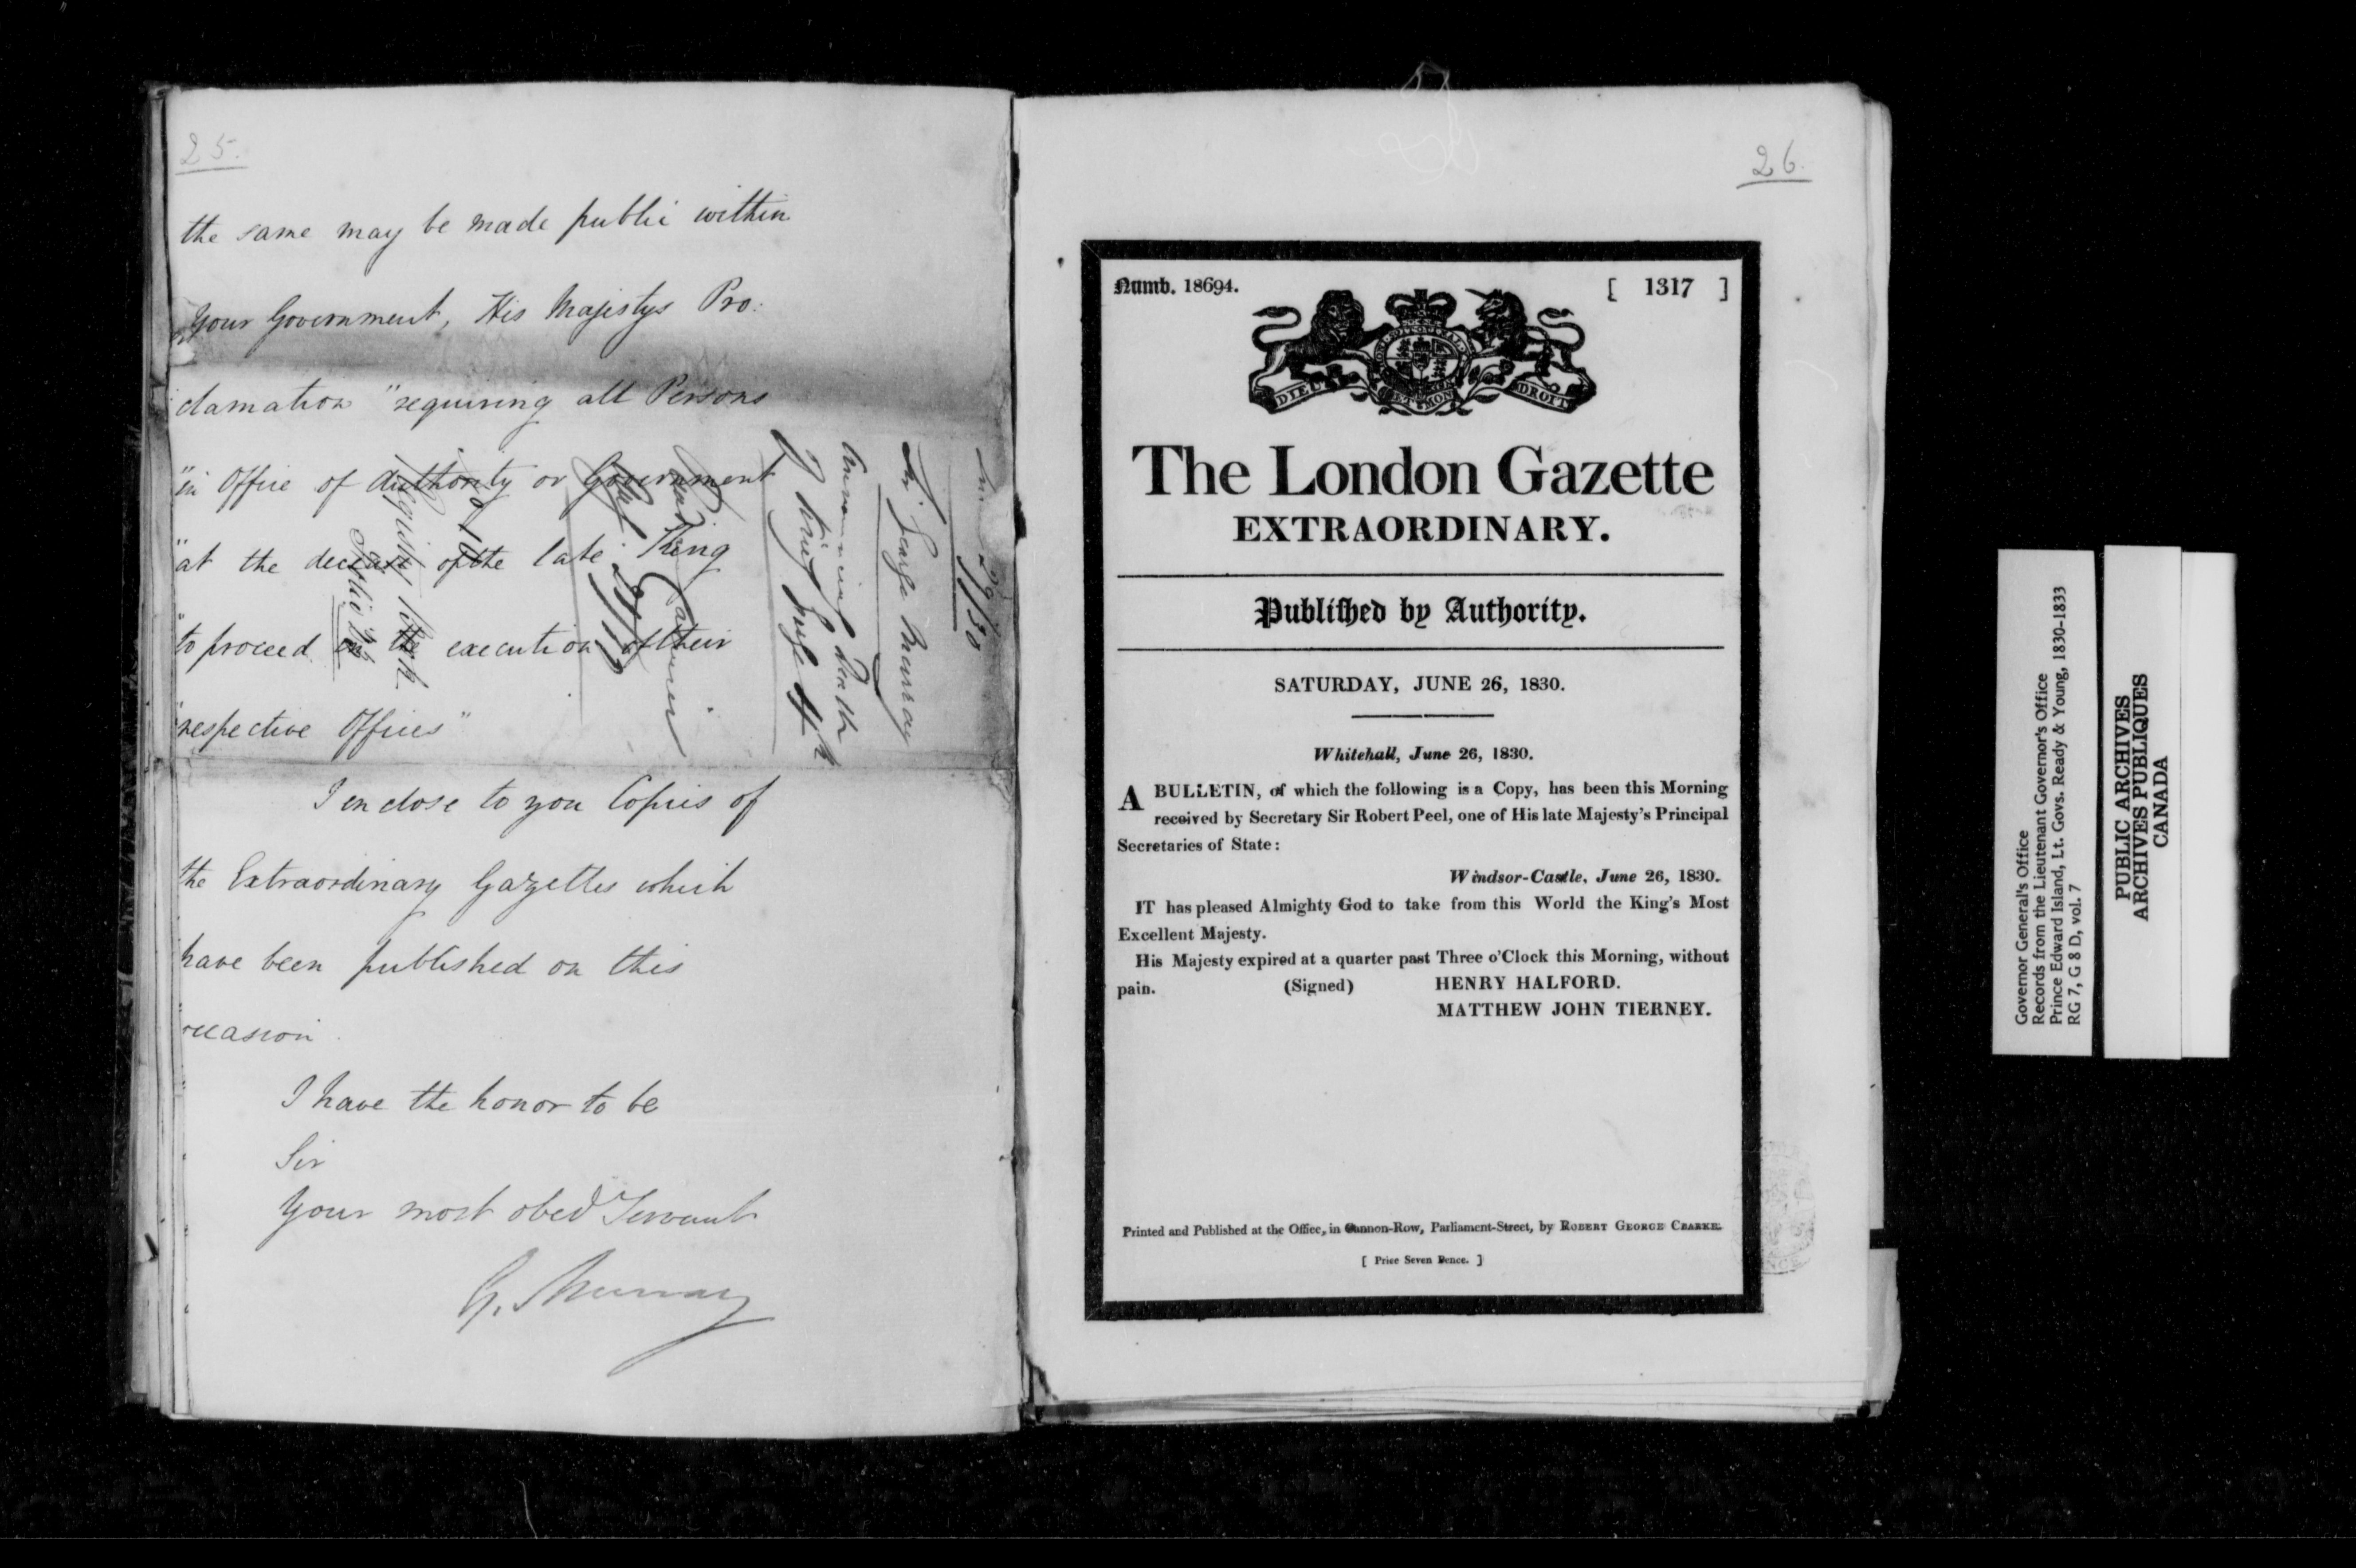 25.
the same may be made public within
Your Government, His Majestys Pro:
clamation "requiring all Persons
"in Office of Authority or Government
"at the decease of the late King
"to proceed in the execution of their
"respective Offices"
I enclose to you Copies of
the Extraordinary Gazettes which
have been published on this
occasion.
I have the honor to be
Sir
Your most obed Servant
G. Murray
June 29/30
Sir George Murray
Announcing Death
of King George 4th
26.
Numb. 18694.
[ 1317 ]
DIEU ET MON DROIT
The London Gazette
EXTRAORDINARY.
Published by Authority.
SATURDAY, JUNE 26, 1830.
Whitehall, June 26, 1830.
A BULLETIN, of which the following is a Copy, has been this Morning
received by Secretary Sir Robert Peel, one of His late Majesty's Principal
Secretaries of State:
Windsor-Castle, June 26, 1830.
IT has pleased Almighty God to take from this World the King's Most
Excellent Majesty.
His Majesty expired at a quarter past Three o'Clock this Morning, without
pain. (Signed) HENRY HALFORD.
MATTHEW JOHN TIERNEY.
Printed and Published at the Office, in Cannon-Row, Parliament-Street, by ROBERT GEORGE CLARKE.
[ Price Seven Pence. ]
Governor General's Office
Records from the Lieutenant Governor's Office
Prince Edward Island, Lt. Govs. Ready & Young, 1830-1833
RG 7, G 8 D, vol. 7
PUBLIC ARCHIVES
ARCHIVES PUBLIQUES
CANADA